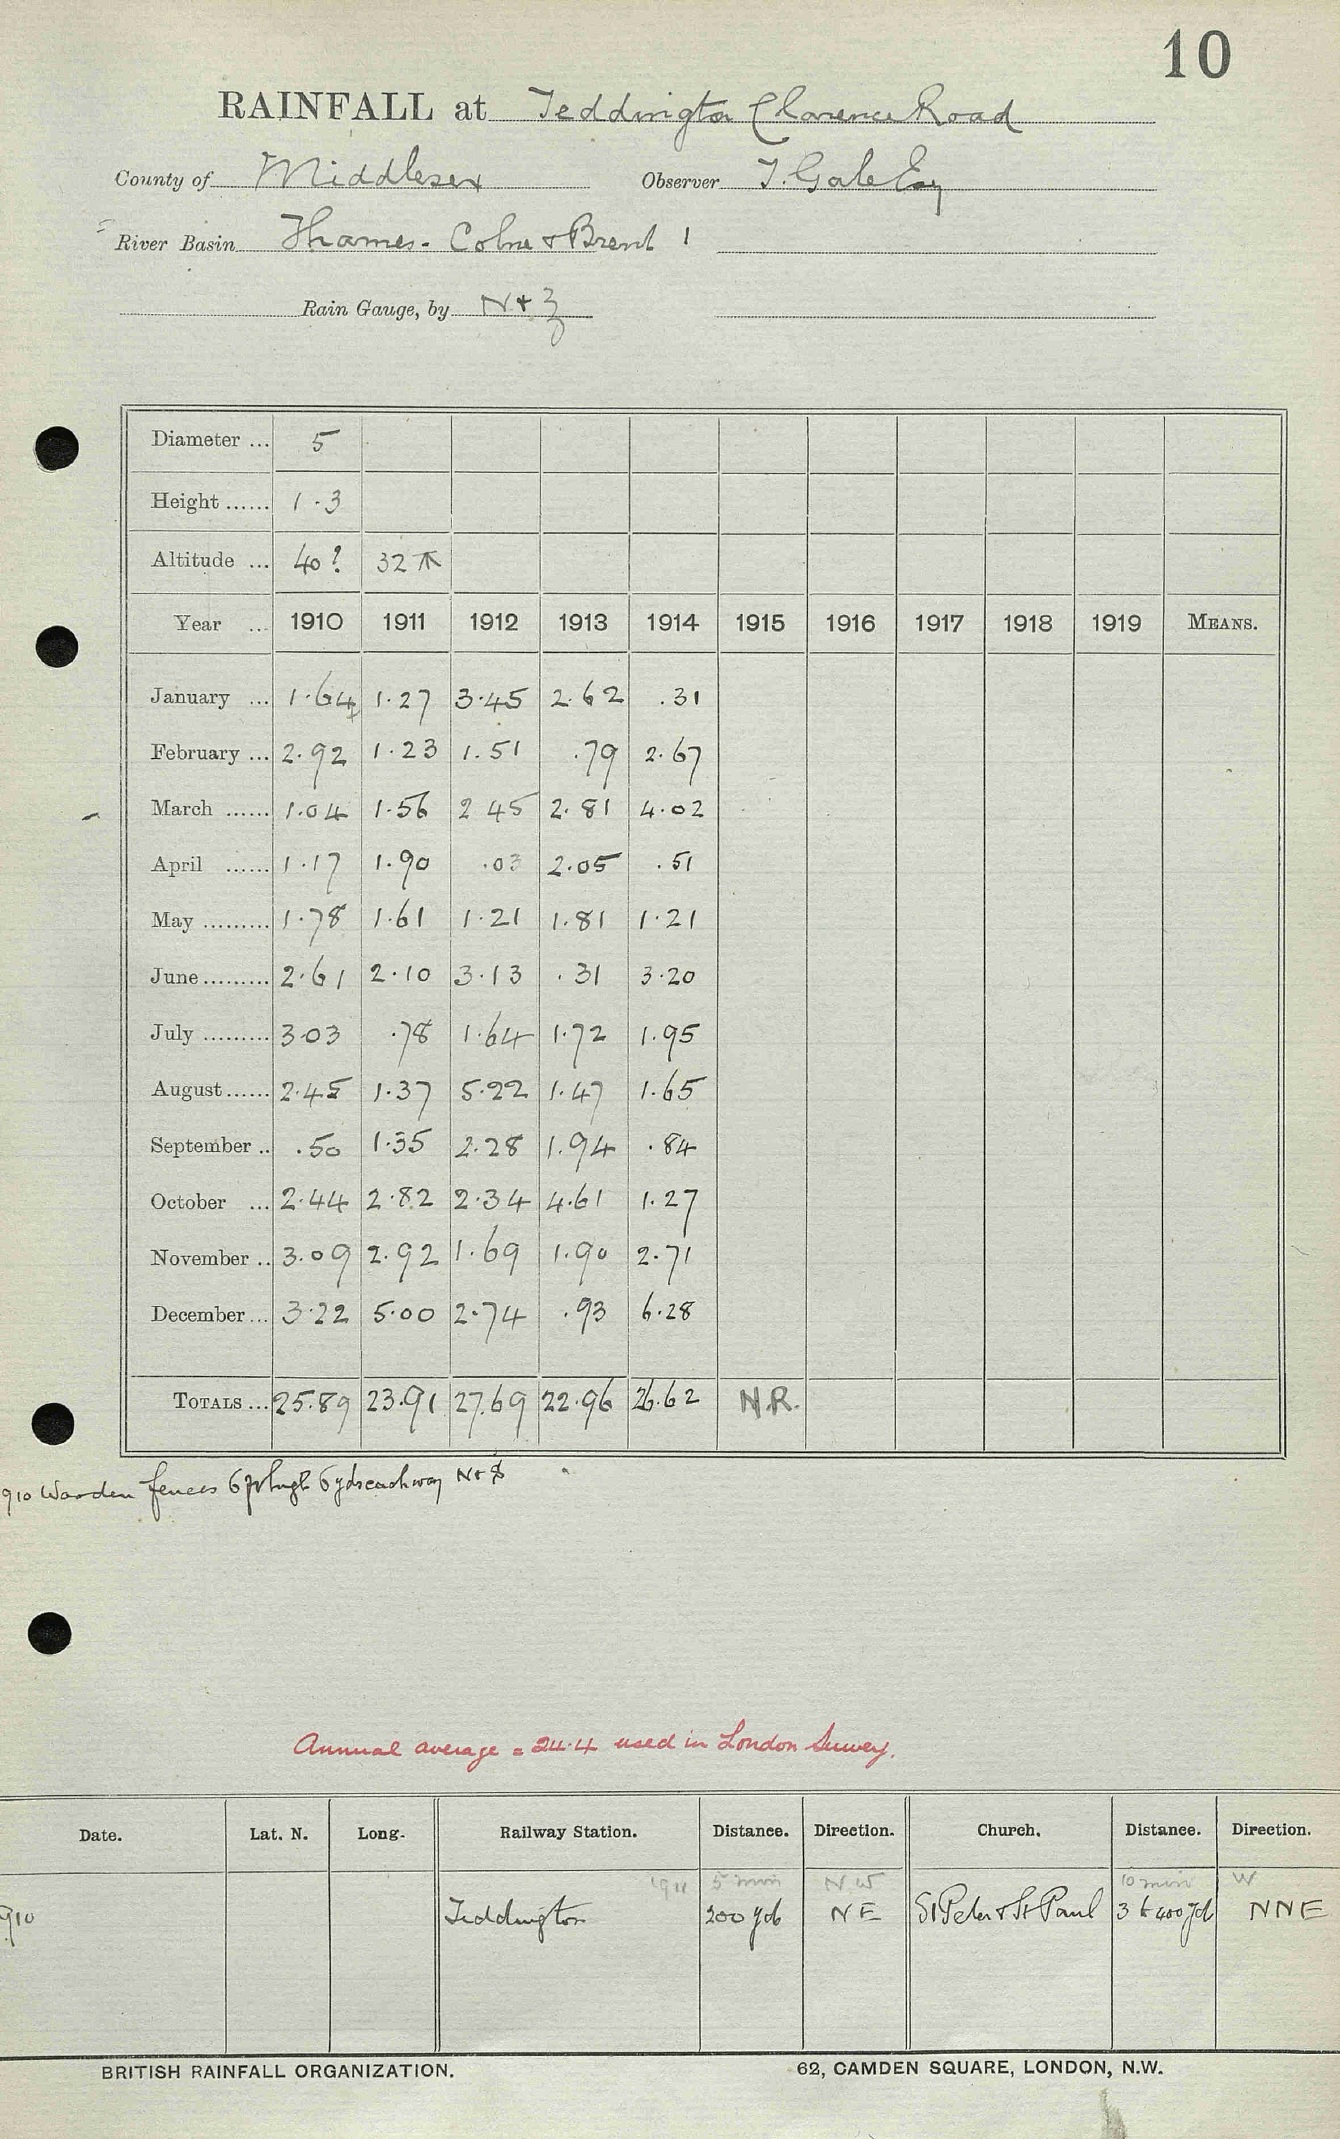 10
RAINFALL at Teddington Clarence Road
County of Middlesex Observer T. Gale Esq
River Basin Thames - Colne & Brent 1
Rain Gauge, by N & Z
Diameter ... 5
Height ...... 1.3
Altitude ... 40? 32
Year ... 1910 1911 1912 1913 1914 1915 1916 1917 1918 1919 MEANS.
January ... 1.64 1.27 3.45 2.62 .31
February ... 2.92 1.23 1.51 .79 2.67
March ...... 1.04 1.56 2 45 2.81 4.02
April ...... 1.17 1.90 .03 2.05 .51
May ......... 1.78 1.61 1.21 1.81 1.21
June ......... 2.61 2.10 3.13 .31 3.20
July ......... 3.03 .78 1.64 1.72 1.95
August ...... 2.45 1.37 5.22 1.47 1.65
September .. .50 1.35 2.28 1.94 .84
October ... 2.44 2.82 2.34 4.61 1.27
November .. 3.09 2.92 1.69 1.90 2.71
December ... 3.22 5.00 2.74 .93 6.28
TOTALS ... 25.89 23.91 27.69 22.96 26.62 N.R.
910 Warden fences 6 ft high 6 yds each way N & S
Annual average = 24.4 used in London Survey.
Date. Lat. N. Long. Railway Station. Distance. Direction. Church. Distance. Direction.
1911 5 min NW 10 min W
910 Teddington 200 yds NE St Peter & St Paul 3 to 400 yds NNE
BRITISH RAINFALL ORGANIZATION. 62, CAMDEN SQUARE, LONDON, N.W.